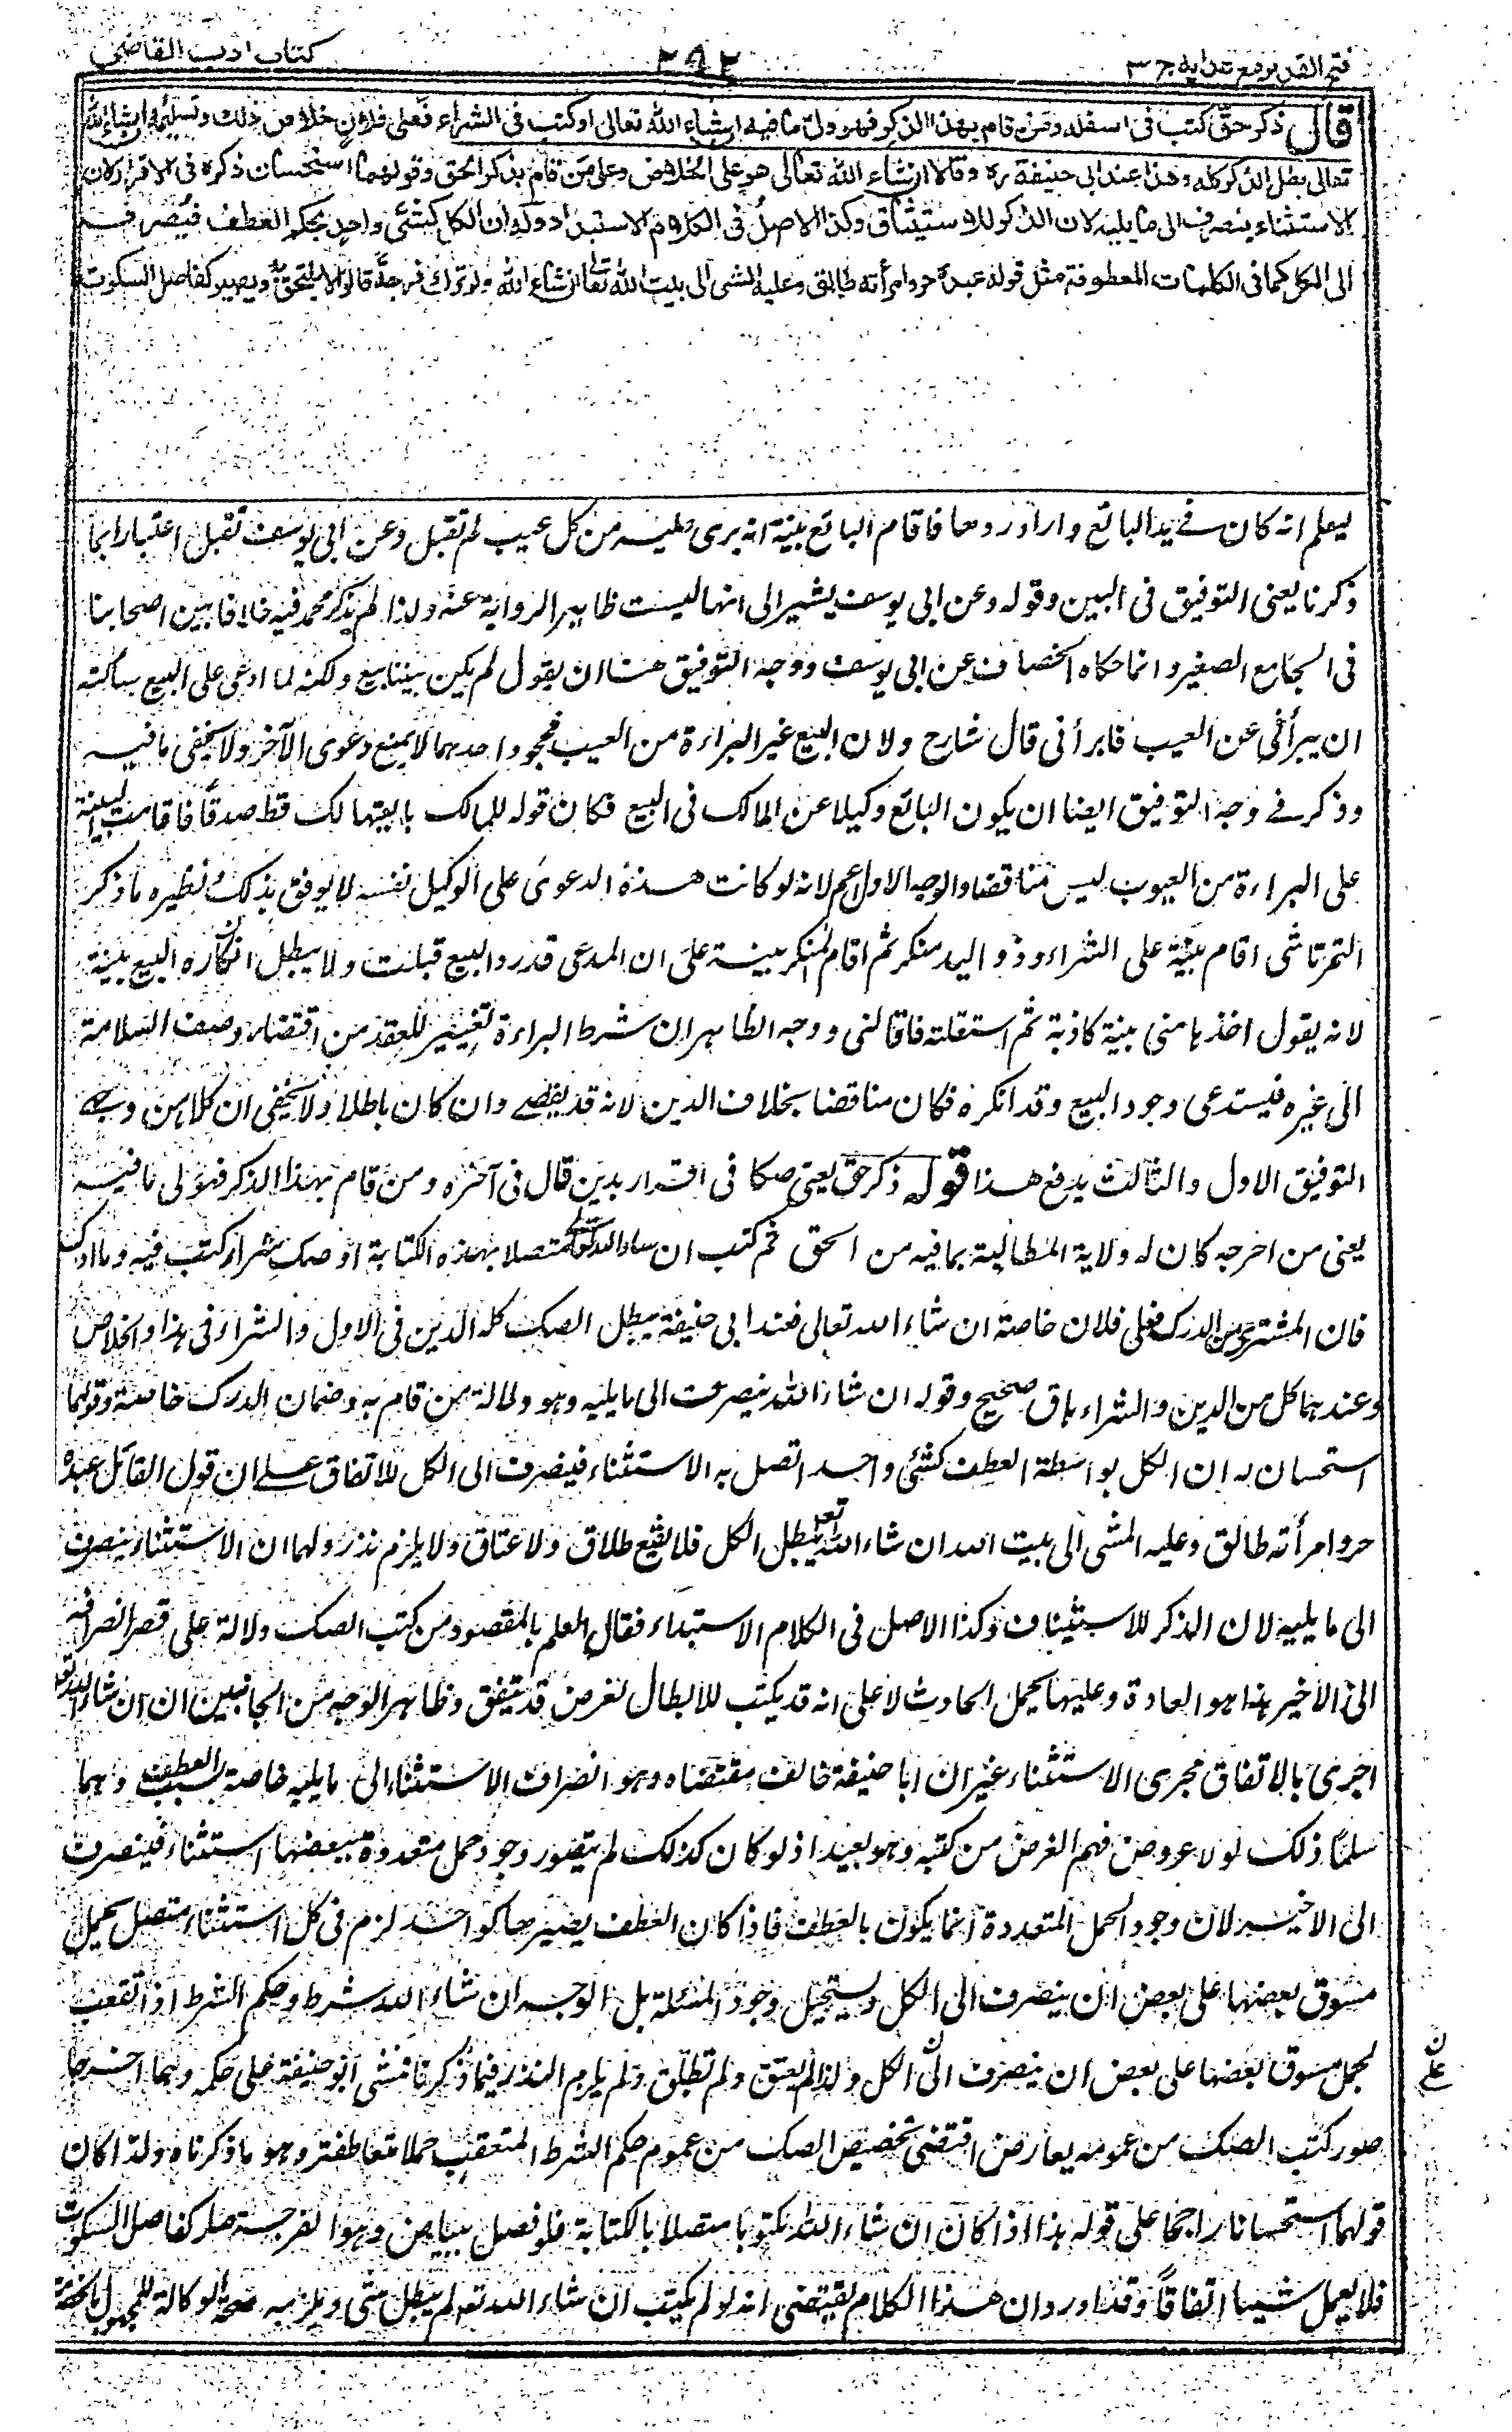 فتح القدير مع هدايه ج ٣
٢٩٢
كتاب ادب القاضي
قال ذكر حق كتب فى اسفله ومن قام بهذا الذكر فهو ولى ما فيه ان شاء الله تعالى او كتب فى الشراء فعلى فلان خلاص ذلك وتسليمه ان شاء الله
تعالى بطل الذكر كله وهذا عند ابى حنيفة ره وقالا ان شاء الله تعالى هو على الخلاص وعلى من قام بذكر الحق وقولهما استحسان ذكره فى الاقرار لان
الاستثناء ينصرف الى ما يليه لان الذكر للاستيثاق وكذا الاصل فى الكلام الاستبداد وله ان الكل كشئ واحد بحكم العطف فيصرف
الى الكل كما فى الكلمات المعطوفة مثل قوله عبده حر وامرأته طالق وعليه المشى الى بيت الله تعالى ان شاء الله ولو ترك فرجة قالوا لا يلتحق به ويصير كفاصل السكوت
ليعلم انه كان فے يد البائع واراد ردها فاقام البائع بينة انه برى اليه من كل عيب لم تقبل وعن ابى يوسف تقبل اعتبارا بما
ذكرنا يعنى التوفيق فى البين وقوله وعن ابى يوسف يشير الى انها ليست ظاهر الرواية عنه ولذا لم يذكر محمد فيه خلافا بين اصحابنا
فى الجامع الصغير وانما حكاه الخصاف عن ابى يوسف ووجه التوفيق هنا ان يقول لم يكن بيننا بيع ولكنه لما ادعى على البيع سألته
ان يبرأنى عن العيب فابرأنى قال شارح ولان البيع غير البراءة من العيب فجحود احدهما لا يمنع دعوى الآخر ولا يخفى ما فيه
وذكر فے وجه التوفيق ايضا ان يكون البائع وكيلا عن المالك فى البيع فكان قوله للمالك ما بعتها لك قط صدقا فاقامة البينة
على البراءة من العيوب ليس مناقضا والوجه الاول اعم لانه لو كانت هذه الدعوى على الوكيل نفسه لا يوفق بذلك نظيره ما ذكر
التمرتاشى اقام بينة على الشراء وذو اليد منكر ثم اقام المنكر بينة على ان المدعى قد رد البيع قبلت ولا يبطل انكاره البيع بينته
لانه يقول اخذها منى ببينة كاذبة ثم استقلته فاقالنى ووجه الظاهر ان شرط البراءة تغيير للعقد من اقتضاء وصف السلامة
الى غيره فيستدعى وجود البيع وقد انكره فكان مناقضا بخلاف الدين لانه قد يقضے وان كان باطلا ولا يخفى ان كلا من وجهے
التوفيق الاول والثالث يدفع هذا قوله ذكر حق يعنى صكا فى اقرار بدين قال فى آخره ومن قام بهذا الذكر فهو لى ما فيه
يعنى من اخرجه كان له ولاية المطالبة بما فيه من الحق ثم كتب ان شاء الله تعالى متصلا بهذه الكتابة او صك شراء كتب فيه وما ادرك
فلان المشترى من الدرك فعلى فلان خاصة ان شاء الله تعالى فعند ابى حنيفة يبطل الصك كله الدين فى الاول والشراء فى هذا والخلاص
وعندهما كل من الدين والشراء باق صحيح وقوله ان شاء الله ينصرف الى ما يليه وهو وكالة من قام به وضمان الدرك خاصة وقولهما
استحسان له ان الكل بواسطة العطف كشئ واحد اتصل به الاستثناء فينصرف الى الكل للاتفاق علے ان قول القائل عبده
حر وامرأته طالق وعليه المشى الى بيت الله ان شاء الله تعه يبطل الكل فلا يقع طلاق ولا عتاق ولا يلزم نذر ولهما ان الاستثناء ينصرف
الى ما يليه لان الذكر للاستيثاق وكذا الاصل فى الكلام الاستبداد فقال العلم بالمقصود من كتب الصك دلالة على قصر انصرافه
الى الاخير هذا هو العادة وعليها يحمل الحادث لا على انه قد يكتب للابطال لغرض قد يتفق وظاهر الوجه من الجانبين ان ان شاء الله تعه
اجرى بالاتفاق مجرى الاستثناء غير ان ابا حنيفة خالف مقتضاه وهو انصراف الاستثناء الى ما يليه خاصة بسبب العطف وهما
سلما ذلك لولا عروض فهم الغرض من كتبه وهو بعيد اذ لو كان كذلك لم يتصور وجود جمل متعددة يعقبها استثناء فينصرف
الى الاخير لان وجود الجمل المتعددة انما يكون بالعطف فاذا كان العطف يصيرها كواحد لزم فى كل استثناء متصل بجمل
منسوق بعضها على بعض ان ينصرف الى الكل ويستحيل وجود المسئلة بل الوجه ان ان شاء الله شرط وحكم الشرط اذا تعقب
لجمل منسوق بعضها على بعض ان ينصرف الى الكل ولذا لم يعتق ولم تطلق ولم يلزم النذر فيما ذكرنا فمشى ابو حنيفة على حكمه وهما اخرجا
صور كتب الصك من عمومه بعارض اقتضى تخصيص الصك من عموم حكم الشرط المتعقب جملا متعاطفة وهو ما ذكرناه ولذا كان
قولهما استحسانا راجحا على قوله هذا اذا كان ان شاء الله مكتوبا متصلا بالكتابة فلو فصل ببياض وهو الفرجة صار كفاصل السكوت
فلا يعمل شيئا اتفاقا وقد اورد ان هذا الكلام يقتضى انه لو لم يكتب ان شاء الله تعه لم يبطل شئ ويلزمه صحة الوكالة للمجهول بالخصومة